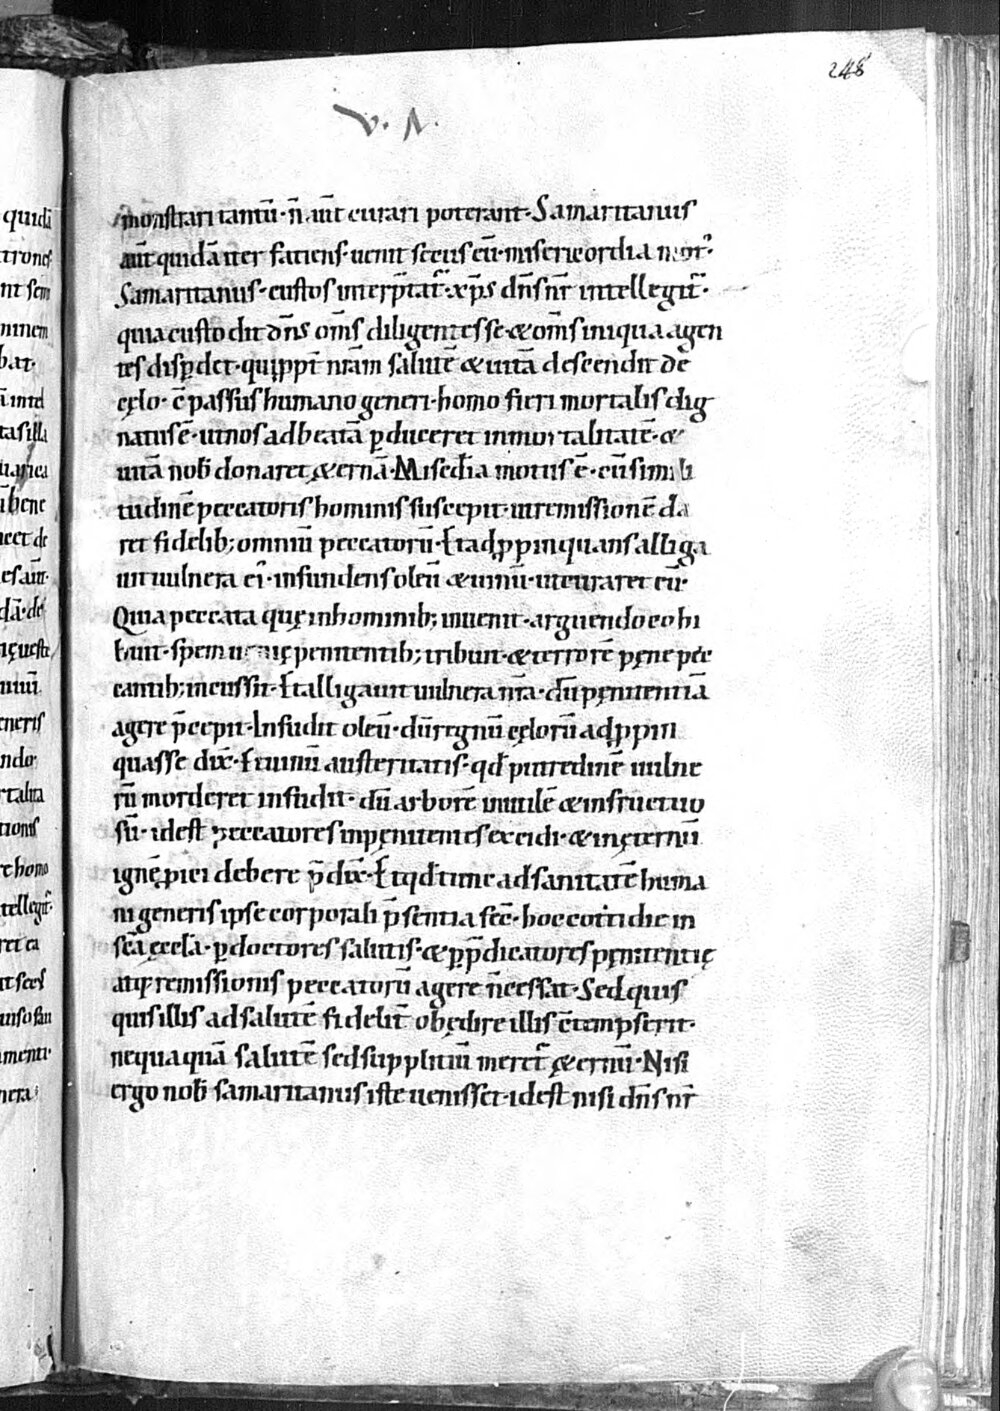 248
V. A.
monstrari tantū· n̄ aūt curari poterant· Samaritanus
aūt quidā iter fatiens· uenit secus eū· misericordia mot᷒·
Samaritanus· custos interp̄tat᷒· xp̄s dn̄s nr̄ intellegit᷒·
quia custodit dn̄s om̄s diligentes se· & om̄s iniqua agen
tes disꝑdet· qui ppt̄ nrām salutē & uitā descendit de
cęlo· ē passus humano generi· homo fieri mortalis dig
natus ē· ut nos ad beatā ꝑduceret inmortalitatē· &
uitā nob̄ donaret &ernā· Miscd̄ia motus ē· cū simili
tudinē peccatoris hominis suscepit· ut remissionē da
ret fidelib; omniū peccatorū· Et adꝓpinquans alliga
uit uulnera ei᷒· infundens oleū & uinū· ut curaret eū·
Quia peccata quę in hominib; inuenit· arguendo cohi
buit· spem uenię penitentib; tribuit· & terrorē pęne pec
cantib; incussit· Et alligauit uulnera nr̄a· dū pęnitentiā
agere p̄cepit· Infudit oleū· dū regnū cęlorū adꝓpin
quasse dix̄· Et uinū austeritatis· qd̄ putredinē uulne
rū morderet infudit· dū arborē inutilē & infructuo
sū· id est peccatores inpęnitentes excidi· & in ęternū
ignē p̨ici debere p̄dix̄· Et qd̄ tunc ad sanitatē huma
ni generis ipse corporali p̄sentia fec̄· hoc cottidie in
scā ęcclā· ꝑ doctores salutis· & ꝑ p̄dicatores pęnitentię
atq; remissionis peccatorū agere n̄ cessat· Sed quis
quis illis ad salutē fidelit̄ obędire illis c̄tempserit·
nequaquā salutē sed supplitiū meret᷒ &ernū· Nisi
ergo nob̄ samaritanus iste uenisset· id est nisi dn̄s nr̄